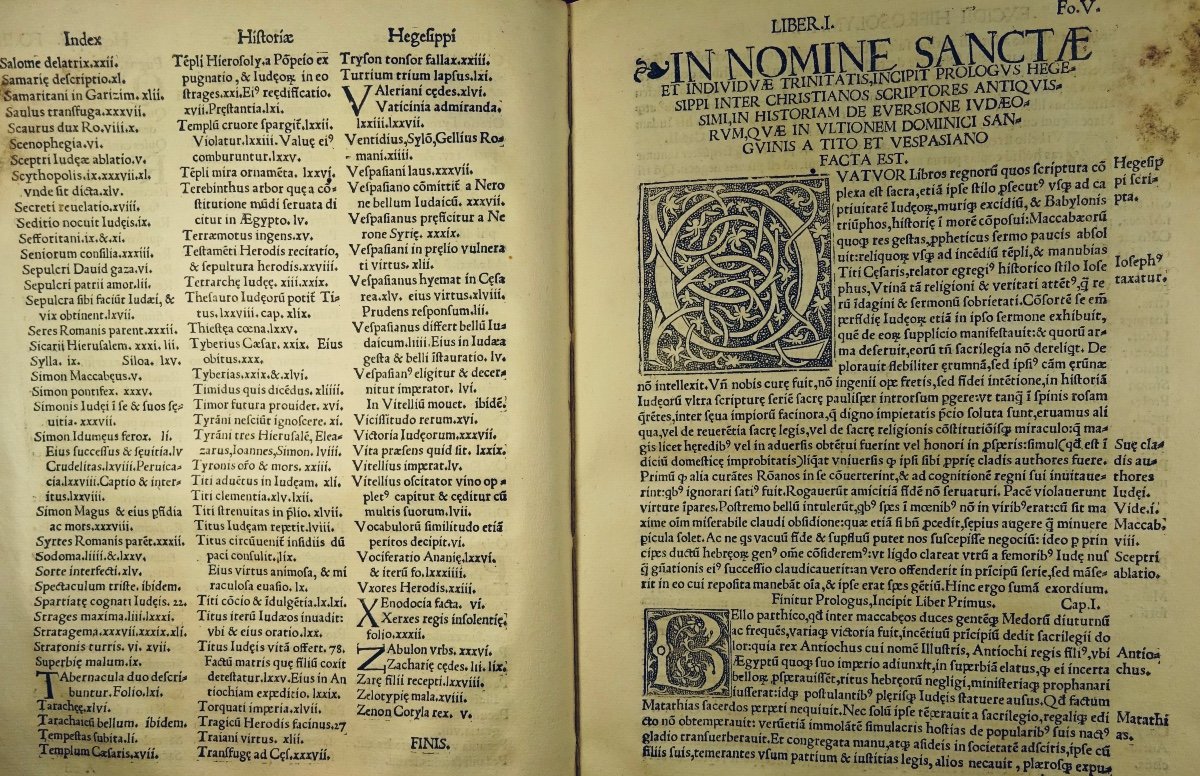 Index
Historiæ
Hegesippi
Salome delatrix.xxii.
Samarię descriptio.xl.
Samaritani in Garizim. xlii.
Saulus transfuga.xxxvii.
Scaurus dux Ro.viii.x.
Scenophegia.vi.
Sceptri Iudęæ ablatio.v.
Scythopolis.ix.xxxvii.xl.
vnde sit dicta.xlv.
Secreti reuelatio.xviii.
Seditio nocuit Iudęis.ix.
Sefforitani.ix.&.xi.
Seniorum consilia.xxxiii.
Sepulcri Dauid gaza.vi.
Sepulcri patrii amor.iii.
Sepulcra sibi faciūt Iudæi, &
vix obtinent.lxvii.
Seres Romanis parent.xxxii.
Sicarii Hierusalem. xxxi. lii.
Sylla. ix. Siloa. lxv.
Simon Maccabęus.v.
Simon pontifex. xxxv.
Simonis Iudęi ī se & suos sę-
uitia. xxxvii.
Simon Idumęus ferox. li.
Eius successus & sęuitia.lv
Crudelitas.lxviii.Peruica-
cia.lxxviii.Captio & inter-
itus.lxxviii.
Simon Magus & eius pfidia
ac mors.xxxviii.
Syrtes Romanis parēt.xxxii.
Sodoma.liiii.&.lxxv.
Sorte interfecti.xlv.
Spectaculum triste. ibidem.
Spartiatę cognati Iudęis. 22.
Strages maxima.liii.lxxxi.
Stratagema.xxxvii.xxxix.xli.
Stratonis turris. vi. xvii.
Superbię malum.ix.
TAbernacula duo descri-
buntur.Folio.lxi.
Tarachęę.xlvi.
Tarachaicū bellum. ibidem.
Tempestas subita.li.
Templum Cæsaris.xvii.
Tēpli Hierosoly.a Pōpeio ex
pugnatio, & Iudęoꝝ in eo
strages.xxi.Eiꝰ reędificatio.
xvii.Pręstantia.lxi.
Templū cruore spargit̃.lxxii.
Violatur.lxxiii. Valuę eiꝰ
comburuntur.lxxv.
Tēpli mira ornamēta. lxxvi.
Terebinthus arbor quę a cō-
stitutione mūdi seruata di
citur in Ægypto. lv.
Terræmotus ingens.xv.
Testamēti Herodis recitatio,
& sepultura herodis.xxviii.
Tetrarchę Iudęę. xiii.xxix.
Thesauro Iudęorū potit̃ Ti-
tus.lxxviii. cap. xlix.
Thiestęa cœna.lxxv.
Tyberius Cæsar. xxix. Eius
obitus.xxx.
Tyberias.xxix.&.xlvi.
Timidus quis dicēdus. xliiii.
Timor futura prouidet. xvi.
Tyrāni nesciūt ignoscere. xi.
Tyrāni tres Hierusalē, Elea-
zarus, Ioannes, Simon. lviii.
Tyronis orō & mors. xxiii.
Titi aduētus in Iudęam. xli.
Titi clementia.xlv.lxii.
Titi strenuitas in p̄lio. xlvii.
Titus Iudęam repetit.lviii.
Titus circūuenit̃ insidiis dū
paci consulit.lix.
Eius virtus animosa, & mi
raculosa euasio. lx.
Titi cōcio & īdulgētia.lx.lxi.
Titus iterū Iudæos inuadit:
vbi & eius oratio.lxx.
Titus Iudęis vitā offert. 78.
Factū matris quę filiū coxit
detestatur.lxxv.Eius in An
tiochiam expeditio. lxxix.
Torquati imperia.xlvii.
Tragicū Herodis facinus.27
Traiani virtus. xlii.
Transfugę ad Cęs.xxxvii.
Tryson tonsor fallax.xxiiii.
Turrium trium lapsus.lxi.
VAleriani cędes.xlvi.
Vaticinia admiranda.
lxxiii.lxxvii.
Ventidius, Sylō, Gellius Ro-
mani.xiiii.
Vespasiani laus.xxxvii.
Vespasiano cōmittit̃ a Nero
ne bellum Iudaicū. xxxvii.
Vespasianus pręficitur a Ne
rone Syrię. xxxix.
Vespasiani in pręlio vulnera
ti virtus. xlii.
Vespasianus hyemat in Cęsa
rea.xlv. eius virtus.xlviii.
Prudens responsum.lii.
Vespasianus differt bellū Iu-
daicum.liiii.Eius in Iudæa
gesta & belli īstauratio. lv.
Vespasianꝰ eligitur & decer-
nitur imperator. lvi.
In Vitelliū mouet. ibidē.
Vicissitudo rerum.xvi.
Victoria Iudęorum.xxxvii.
Vita pręsens quid sit. lxxix.
Vitellius imperat.lv.
Vitellius oscitator vino op-
pletꝰ capitur & cęditur cū
multis suorum. lvii.
Vocabulorū similitudo etiā
peritos decipit.vi.
Vociferatio Ananię.lxxvi.
& iterū fo.lxxxiiii.
Vxores Herodis.xxiii.
XEnodocia facta. vi.
Xerxes regis insolentię.
folio.xxxii.
ZAbulon vrbs. xxxvi.
Zacharię cędes. lii. lix.
Zarę filii recepti.lxxviii.
Zelotypię mala.xviii.
Zenon Cotyla rex. v.
FINIS.
LIBER.I.
Fo.V.
IN NOMINE SANCTÆ
ET INDIVIDVÆ TRINITATIS,INCIPIT PROLOGVS HEGE-
SIPPI INTER CHRISTIANOS SCRIPTORES ANTIQVIS-
SIMI,IN HISTORIAM DE EVERSIONE IVDÆO-
RVM,QVÆ IN VLTIONEM DOMINICI SAN-
GVINIS A TITO ET VESPASIANO
FACTA EST.
QVATVOR Libros regnorū quos scriptura cō
plexa est sacra, etiā ipse stilo ꝓsecutꝰ vsqꝫ ad ca
ptiuitatē Iudęoꝝ, muriqꝫ excidiū, & Babylonis
triūphos, historię ī morē cōposui: Maccabæorū
quoqꝫ res gestas, ꝓpheticus sermo paucis absol
uit: reliquoꝝ vsqꝫ ad incēdiū tēpli, & manubias
Titi Cęsaris, relator egregiꝰ historico stilo Iose
phus, Vtinā tā religioni & veritati attētꝰ, q̄ re
rū īdagini & sermonū sobrietati. Cōsortē se em̄
perfidię Iudęoꝝ etiā in ipso sermone exhibuit,
quē de eoꝝ supplicio manifestauit: & quorū ar-
ma deseruit, eorū tn̄ sacrilegia nō dereliqt̃. De
plorauit flebiliter ęrumnā, sed ipsiꝰ cām ęrūnæ
nō intellexit. Vn̄ nobis curę fuit, nō ingenii opę fretis, sed fidei intētione, in historiā
Iudęorū vltra scripturę seriē sacrę paulisper introrsum pgere: vt tanqꝫ ī spinis rosam
q̄rētes, inter sęua impiorū facinora, q̄ digno impietatis pcio soluta sunt, eruamus ali
qua, vel de reuerētia sacrę legis, vel de sacrę religionis cōstitutiōisqꝫ miraculo: q̄ ma-
gis licet hęredibꝰ vel in aduersis obtētui fuerint vel honori in ꝓsperis: simul (qd̄ est ī
diciū domesticę improbitatis) liq̄at vniuersis qꝫ ipsi sibi ꝓprię cladis authores fuere.
Primū qꝫ alia curātes Rōanos in se cōuerterint, & ad cognitionē regni sui inuitaue-
rint: qbꝰ ignorari satiꝰ fuit. Rogauerūt amicitiā fidē nō seruaturi. Pacē violauerunt
virtute īpares. Postremo bellū intulerūt, qbꝰ spes ī mœnibꝰ nō in viribꝰ erat: cū sit ma
xime oīm miserabile claudi obsidione: quæ etiā si bn̄ pcedit, sępius augere q̄ minuere
picula solet. Ac ne qs vacuū fide & supfluū putet nos suscepisse negociū: ideo p prin
cipes ductū hebręoꝝ genꝰ om̄e cōsiderem̄: vt liqdo clareat vtrū a femoribꝰ Iudę nusꝙ
q̄ gn̄ationis eiꝰ successio claudicauerit: an vero offenderit in prīcipū serie, sed māse-
rit in eo cui reposita manebāt oīa, & ipse erat spes gētiū. Hinc ergo sumā exordium.
Finitur Prologus, Incipit Liber Primus. Cap.I.
BEllo parthico, qd̄ inter maccabęos duces gentēqꝫ Medorū diuturnū
ac frequēs, variaqꝫ victoria fuit, incētiuū prīcipiū dedit sacrilegii do
lor: quia rex Antiochus cui nomē Illustris, Antiochi regis filiꝰ, vbi
Ægyptū quoqꝫ suo imperio adiunxit, in superbiā elatus, qꝫ ei incerta
belloꝝ ꝓsperauissēt, ritus hebręorū negligi, ministeriaqꝫ prophanari
iusserat: idqꝫ postulantibꝰ plerisqꝫ Iudęis statuere ausus. Qd̄ factum
Matathias sacerdos perpeti nequiuit. Nec solū ipse tēperauit a sacrilegio, regaliqꝫ edi
cto nō obtemperauit: verūetiā immolātē simulacris hostias de popularibꝰ suis nactꝰ,
gladio transuerberauit. Et congregata manu, atqꝫ asideis in societatē adscitis, ipse cū
filiis suis, temerantes vsum patrium & iustitias legis, alios necauit, plærosqꝫ expu-
Hegesip
pi scri-
pta.
Iosephꝰ
taxatur.
Suę cla-
dis au-
thores
Iudęi.
Vide.i.
Maccab,
viii.
Sceptri
ablatio.
Antio-
chus.
Matathi
as.